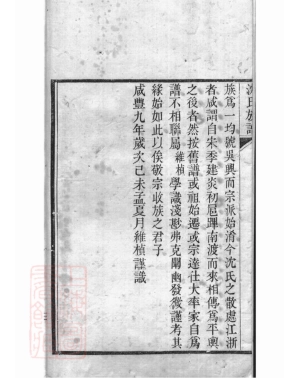 沈氏族譜
族爲一均號吳興而宗派始淆今沈氏之散處江浙
者咸謂自宋季建炎初扈蹕南渡而來相傳爲平輿
之後者然按舊譜或祖始遷或宗達仕大率家自爲
譜不相聯屬維楨學識淺尠弗克闡幽發微謹考其
緣始如此以俟敬宗收族之君子
咸豐九年歲次己未孟夏月維楨謹識